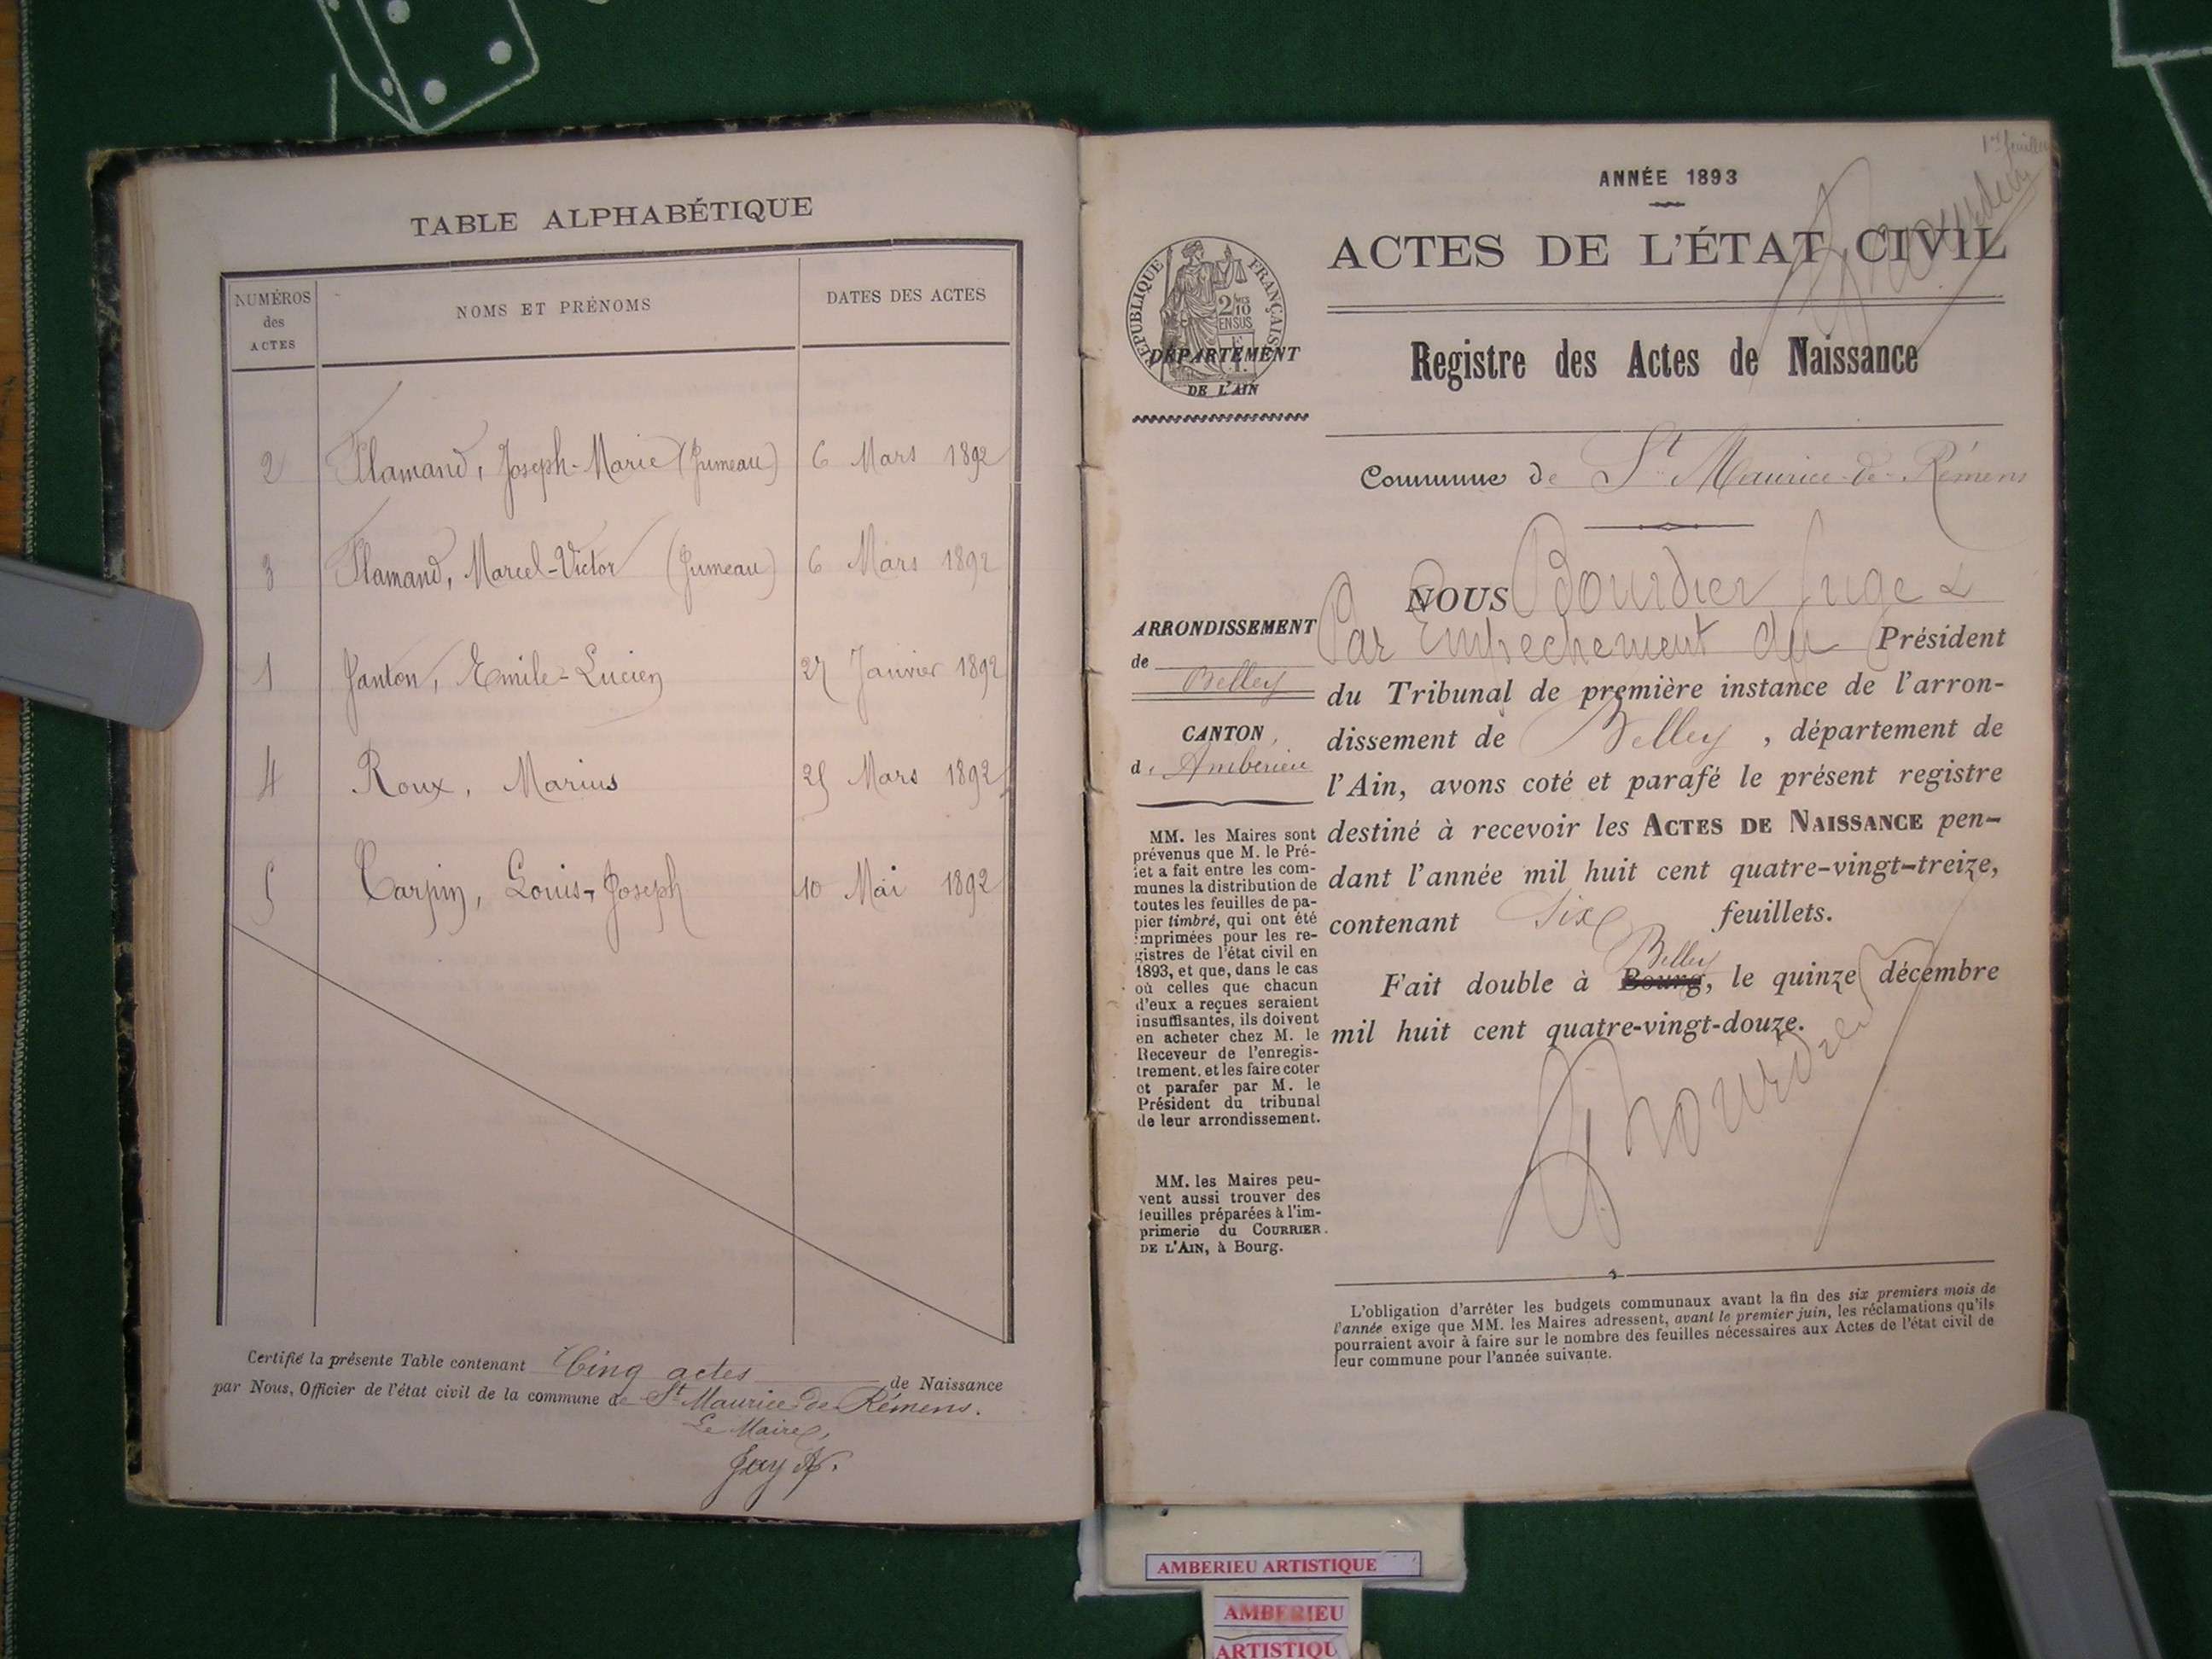 TABLE ALPHABÉTIQUE
NUMÉROS des ACTES
NOMS ET PRÉNOMS
DATES DES ACTES
2 Flamand, Joseph-Marie (Jumeau) 6 Mars 1892
3 Flamand, Marcel-Victor (Jumeau) 6 Mars 1892
1 Janton, Emile-Lucien 27 Janvier 1892
4 Roux, Marius 25 Mars 1892
5 Carpin, Louis-Joseph 10 Mai 1892
Certifié la présente Table contenant Cinq actes de Naissance
par Nous, Officier de l'état civil de la commune de St Maurice de Rémens.
Le Maire,
1er feuillet
ANNÉE 1893
ACTES DE L'ÉTAT CIVIL
RÉPUBLIQUE FRANÇAISE
DÉPARTEMENT
DE L'AIN
Registre des Actes de Naissance
Commune de St Maurice-de-Rémens
ARRONDISSEMENT
de Belley
CANTON
d'Ambérieu
MM. les Maires sont
prévenus que M. le Pré-
fet a fait entre les com-
munes la distribution de
toutes les feuilles de pa-
pier timbré, qui ont été
imprimées pour les re-
gistres de l'état civil en
1893, et que, dans le cas
où celles que chacun
d'eux a reçues seraient
insuffisantes, ils doivent
en acheter chez M. le
Receveur de l'enregis-
trement, et les faire coter
et parafer par M. le
Président du tribunal
de leur arrondissement.
MM. les Maires peu-
vent aussi trouver des
feuilles préparées à l'im-
primerie du COURRIER
DE L'AIN, à Bourg.
NOUS Bourdier Juge
Par Empechement du Président
du Tribunal de première instance de l'arron-
dissement de Belley, département de
l'Ain, avons coté et parafé le présent registre
destiné à recevoir les ACTES DE NAISSANCE pen-
dant l'année mil huit cent quatre-vingt-treize,
contenant Six feuillets.
Belley
Fait double à Bourg, le quinze décembre
mil huit cent quatre-vingt-douze.
Bourdier
L'obligation d'arrêter les budgets communaux avant la fin des six premiers mois de
l'année exige que MM. les Maires adressent, avant le premier juin, les réclamations qu'ils
pourraient avoir à faire sur le nombre des feuilles nécessaires aux Actes de l'état civil de
leur commune pour l'année suivante.
AMBERIEU ARTISTIQUE
AMBERIEU
ARTISTIQU